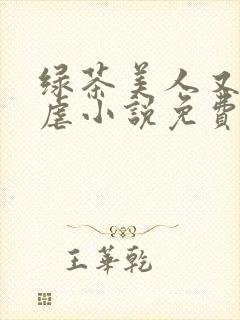 绿茶美人又
虐小説免費
王華乾